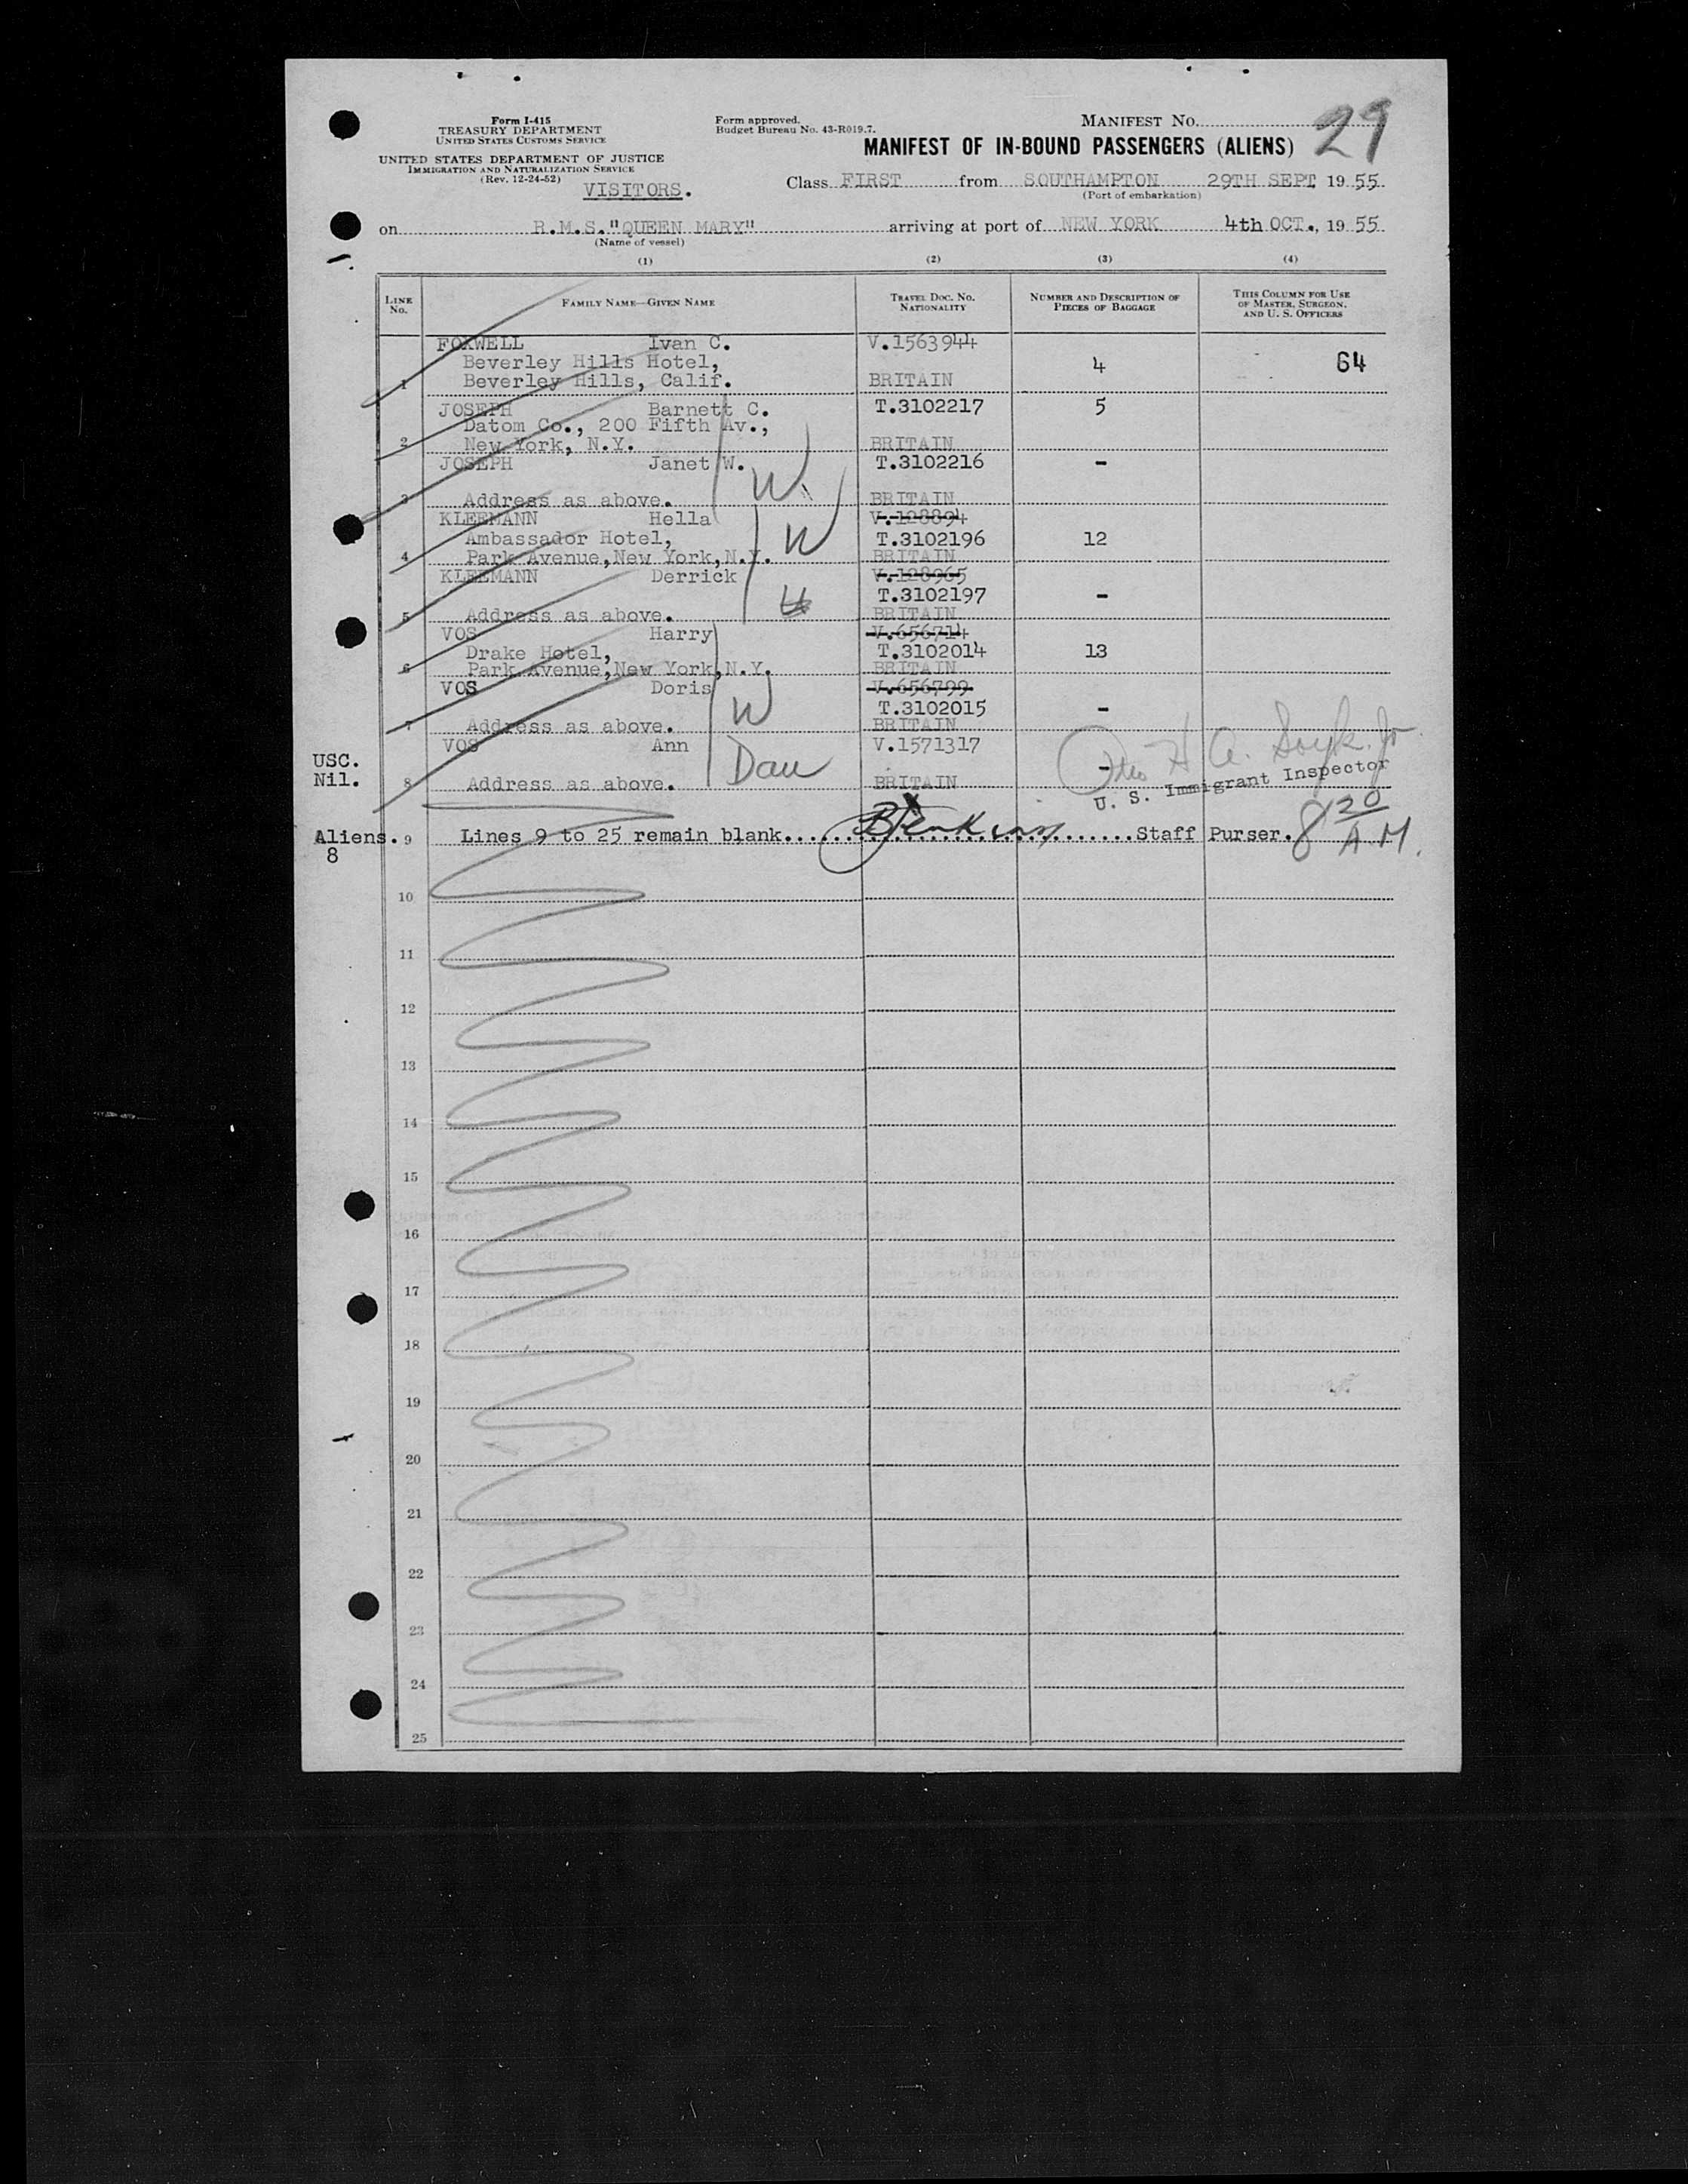 Form I-415
TREASURY DEPARTMENT
UNITED STATES CUSTOMS SERVICE
UNITED STATES DEPARTMENT OF JUSTICE
IMMIGRATION AND NATURALIZATION SERVICE
(Rev. 12-24-52)
VISITORS.
Form approved.
Budget Bureau No. 43-R019.7.
MANIFEST No. 29
MANIFEST OF IN-BOUND PASSENGERS (ALIENS)
Class FIRST from SOUTHAMPTON 29TH SEPT 19 55
(Port of embarkation)
on R.M.S."QUEEN MARY" arriving at port of NEW YORK 4th OCT., 19 55
(Name of vessel)
(1) (2) (3) (4)
LINE No. FAMILY NAME—GIVEN NAME TRAVEL DOC. NO. NATIONALITY NUMBER AND DESCRIPTION OF PIECES OF BAGGAGE THIS COLUMN FOR USE OF MASTER, SURGEON, AND U. S. OFFICERS
FOXWELL Ivan C. V.1563944
Beverley Hills Hotel, 4 64
1 Beverley Hills, Calif. BRITAIN
JOSEPH Barnett C. T.3102217 5
Datom Co., 200 Fifth Av.,
2 New York, N.Y. BRITAIN
JOSEPH Janet W. T.3102216 -
W
3 Address as above. BRITAIN
KLEEMANN Hella V.128894
Ambassador Hotel, W T.3102196 12
4 Park Avenue,New York,N.Y. BRITAIN
KLEEMANN Derrick V.128965
T.3102197 -
5 Address as above. BRITAIN
VOS Harry V.656714
Drake Hotel, T.3102014 13
6 Park Avenue,New York,N.Y. BRITAIN
VOS Doris V.656799
W T.3102015 -
7 Address as above. BRITAIN
VOS Ann V.1571317
USC. Dau -
Nil. 8 Address as above. BRITAIN
U. S. Immigrant Inspector
Aliens. 9 Lines 9 to 25 remain blank. Staff Purser. 8 30 A.M.
8
10
11
12
13
14
15
16
17
18
19
20
21
22
23
24
25